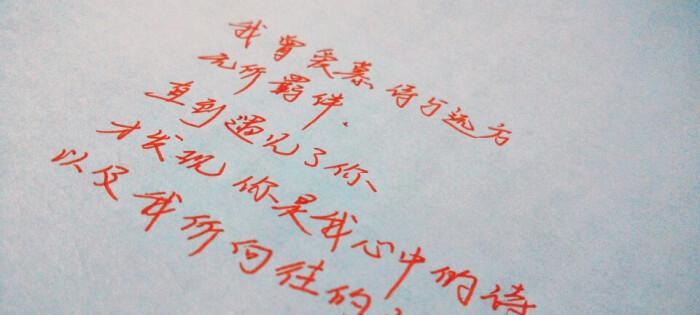 我曾爱慕诗与远方
无所羁绊、
直到遇见了你、
才发现 你是我心中的诗
以及我所向往的